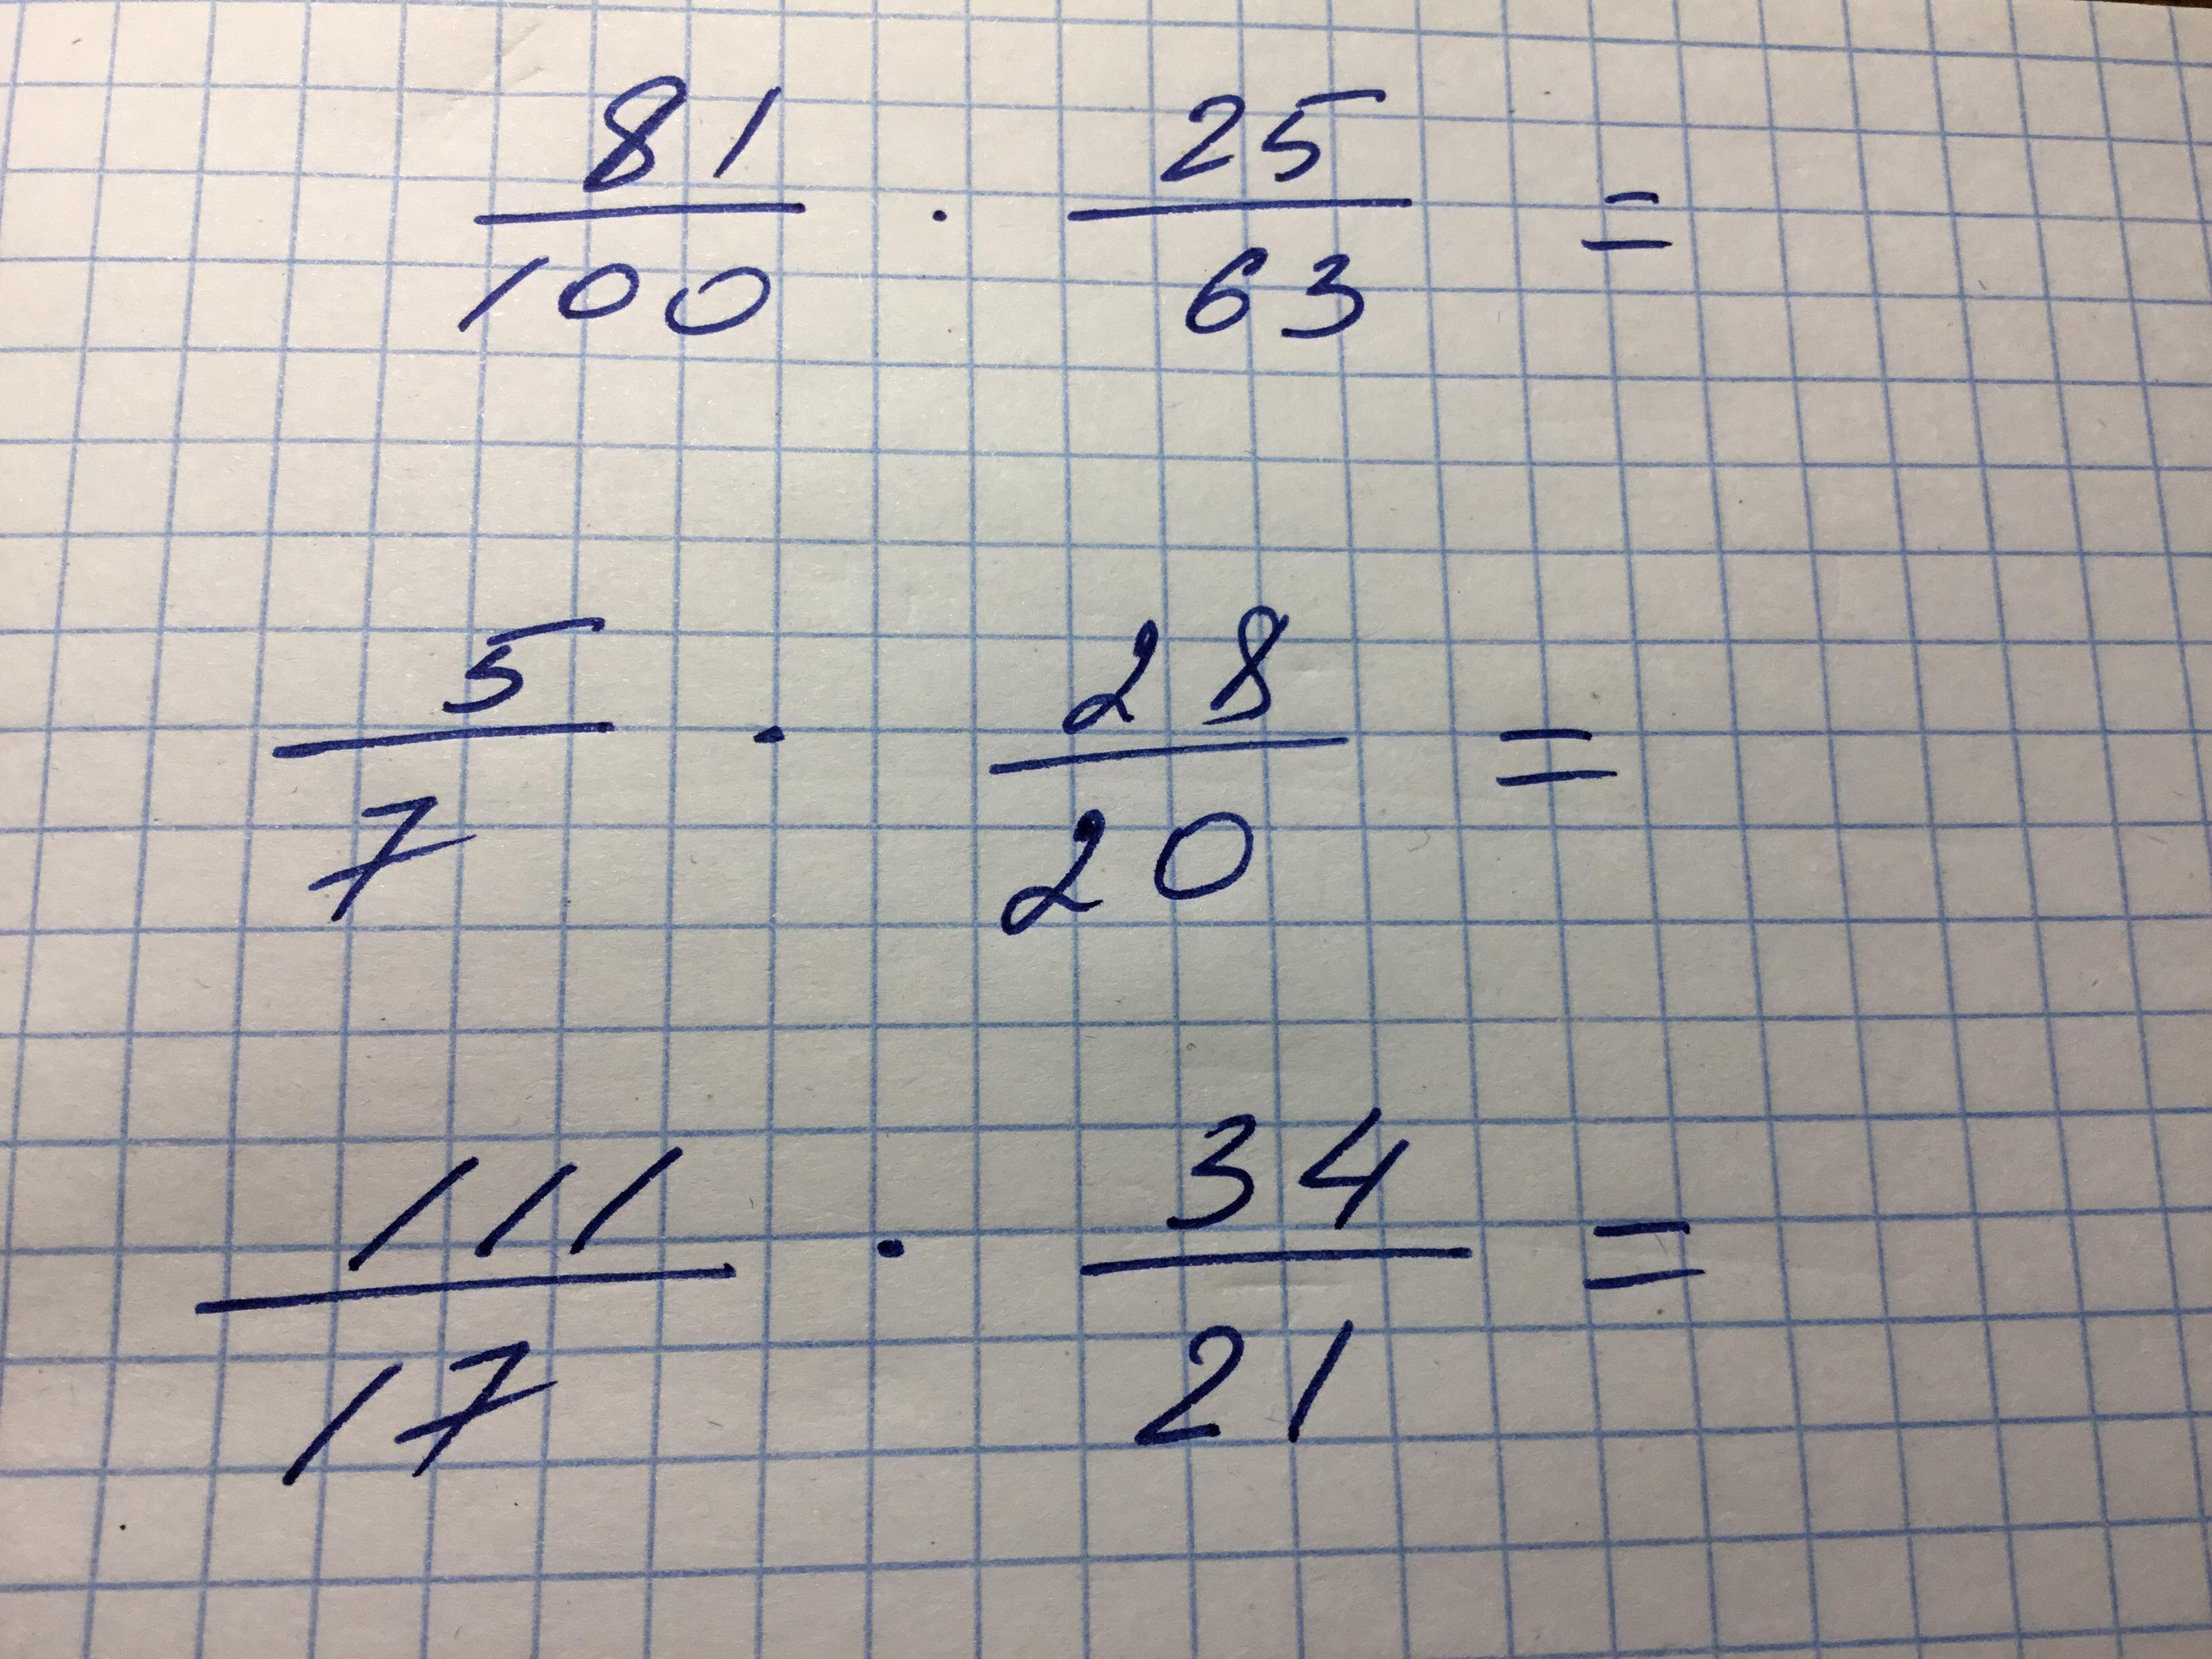 81/100 · 25/63 =
5/7 · 28/20 =
111/17 · 34/21 =